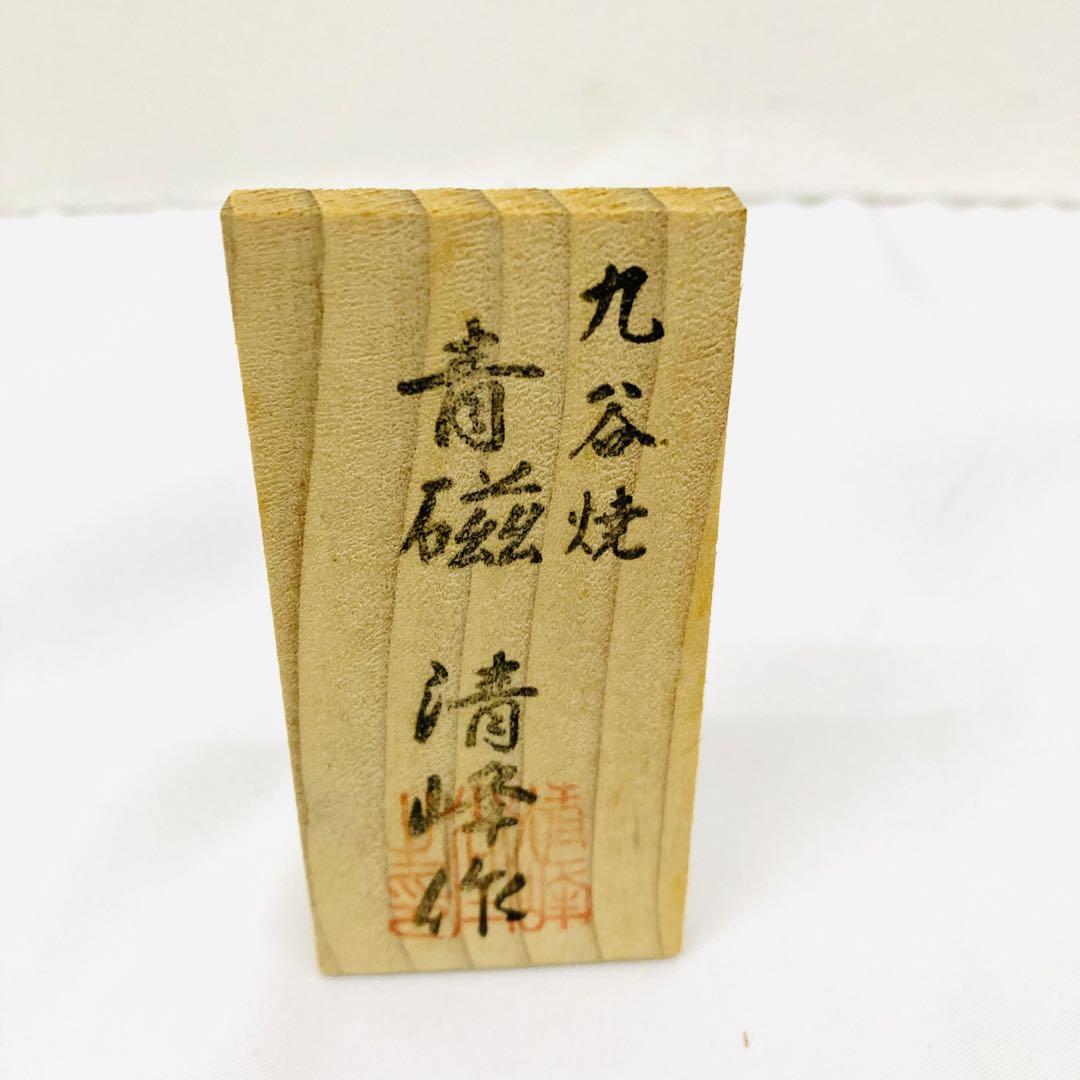 九谷焼
青磁 清峰作